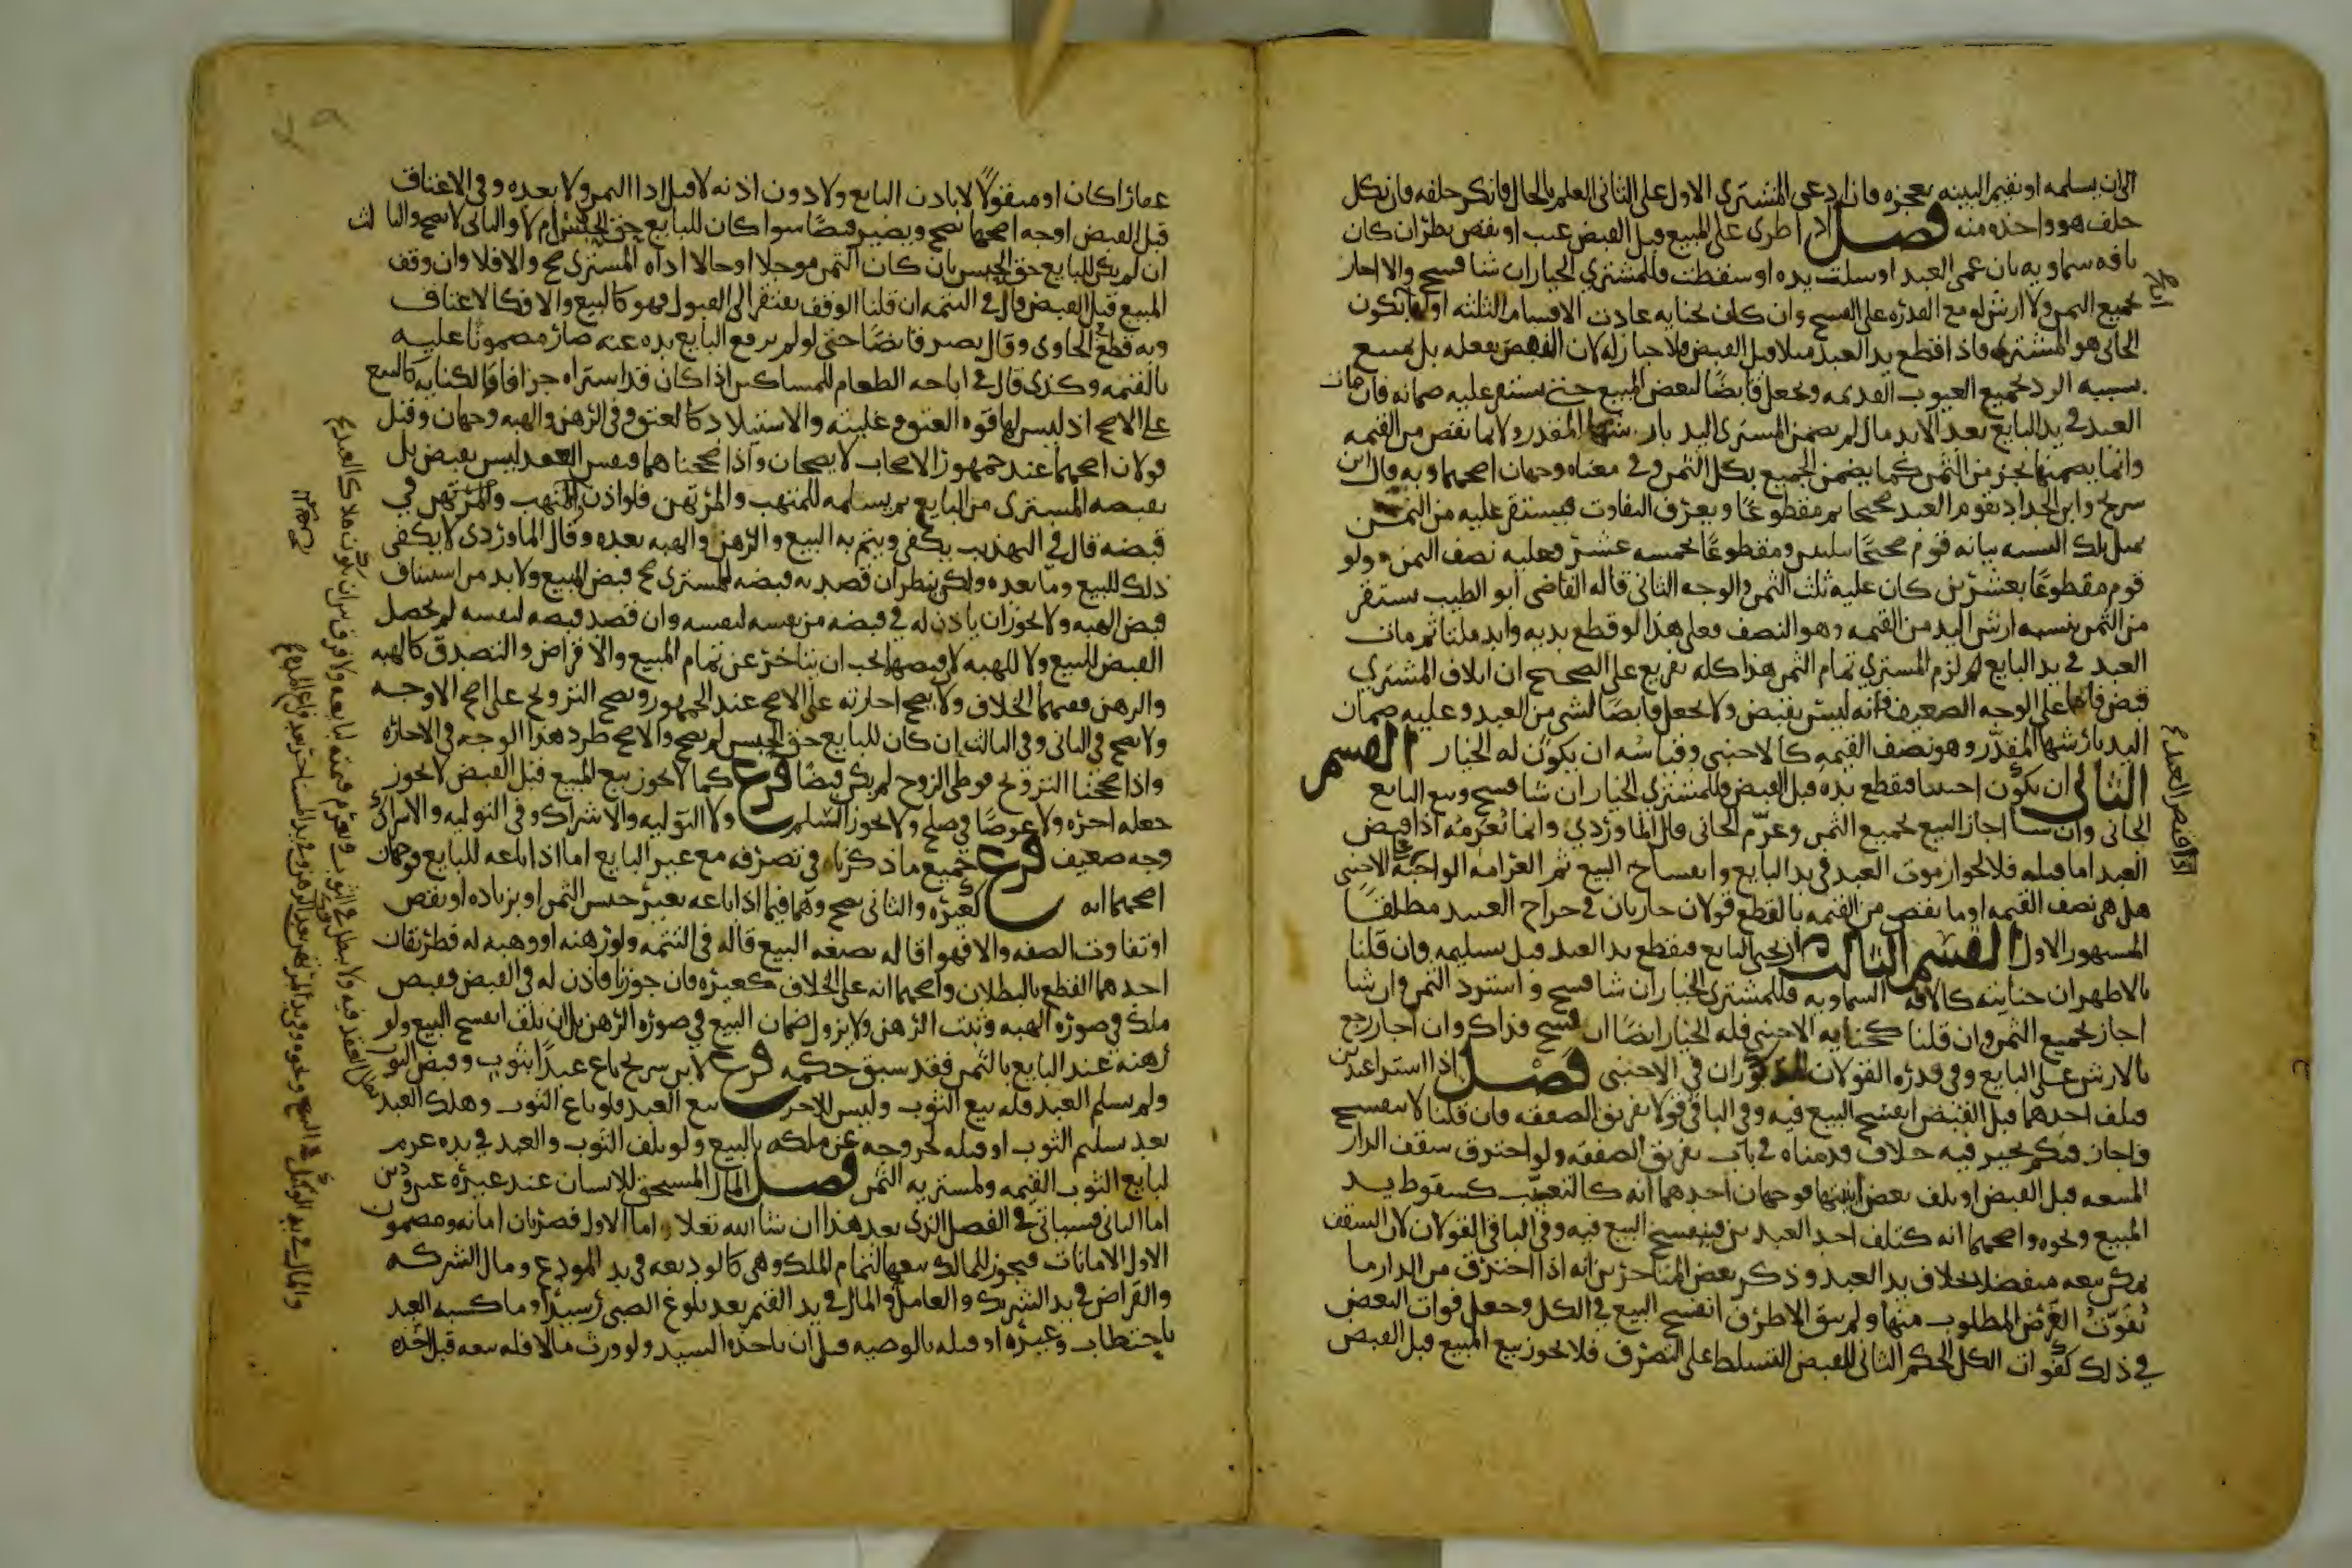 الى ان يسلمه او يقيم البينه بعجزه وان ادعى المشتري الاول على الثاني العلم بالحال فانكر حلفه فان نكل
حلف هو واخذه منه فصل اذا طرى على المبيع قبل القبض عيب او نقص نظر ان كان
بافه سماويه بان عمى العبد او سلت يده او سقطت فللمشتري الخيار ان شا فسخ والا اجاز
بجميع الثمن ولا ارش له مع القدره على الفسخ وان كان بجنايه عادت الاقسام الثلثه اولها يكون
الجاني هو المشتري فاذا قطع يد العبد مثلا قبل القبض فلا خيار له لان النقص بفعله بل يمتنع
بسببه الرد بجميع العيوب القديمه ويجعل قابضا لبعض المبيع حتى يستقر عليه ضمانه فان مات
العبد في يد البايع بعد الاندمال لم يضمن المشتري اليد بارشها المقدر ولا بما نقص من القيمه
وانما يضمنها بجزء من الثمن كما يضمن الجميع بكل الثمن وفي معناه وجهان اصحهما وبه قال ابن
سريج وابن الحداد يقوم العبد صحيحا ثم مقطوعا ويعرف التفاوت فيستقر عليه من الثمن
بمثل تلك النسبه بيانه قوم صحيحا بثلثين ومقطوعا بخمسه عشر فعليه نصف الثمن ولو
قوم مقطوعا بعشرين كان عليه ثلث الثمن والوجه الثاني قاله القاضي ابو الطيب يستقر
من الثمن بنسبه ارش اليد من القيمه وهو النصف فعلى هذا لو قطع يديه واندملتا ثم مات
العبد في يد البايع لزم المشتري تمام الثمن هذا كله تفريع على الصحيح ان اتلاف المشتري
قبض فاما على الوجه الضعيف فانه ليس بقبض ولا يجعل قابضا لشي من العبد وعليه ضمان
اليد بارشها المقدر وهو نصف القيمه كالاجنبي وقياسه ان يكون له الخيار القسم
الثاني ان يكون اجنبيا فقطع يده قبل القبض فللمشتري الخيار ان شا فسخ وتبع البايع
الجاني وان شا اجاز البيع بجميع الثمن وغرم الجاني قال الماوردي وانما يغرمه اذا قبض
العبد اما قبله فلا لجواز موت العبد في يد البايع وانفساخ البيع ثم الغرامه الواجبه على الاجنبي
هل هي نصف القيمه او ما نقص من القيمه بالقطع قولان جاريان في جراح العبيد مطلقا
المشهور الاول القسم الثالث ان يجني البايع فيقطع يد العبد قبل تسليمه فان قلنا
بالاظهر ان جنايته كالافه السماويه فللمشتري الخيار ان شا فسخ واسترد الثمن وان شا
اجاز بجميع الثمن وان قلنا كجنايه الاجنبي فله الخيار ايضا ان فسخ فذاك وان اجاز رجع
بالارش على البايع وفي قدره القولان المذكوران في الاجنبي فصل اذا اشترا عبدين
فتلف احدهما قبل القبض انفسخ البيع فيه وفي الباقي قولا تفريق الصفقه فان قلنا لا ينفسخ
واجاز فبكم يجيز فيه خلاف قدمناه في باب تفريق الصفقه ولو احترق سقف الدار
المبيعه قبل القبض او تلف بعض ابنيتها فوجهان احدهما انه كالتعيب كسقوط يد
المبيع ونحوه واصحهما انه كتلف احد العبدين فينفسخ البيع فيه وفي الباقي القولان لان السقف
يمكن بيعه منفصلا بخلاف يد العبد وذكر بعض المتاخرين انه اذا احترق من الدار ما
يفوت الغرض المطلوب منها ولم يبق الا طرف انفسخ البيع في الكل وجعل فوات البعض
في ذلك كفوات الكل الحكم الثاني للقبض التسلط على التصرف فلا يجوز بيع المبيع قبل القبض
عقارا كان او منقولا لا باذن البايع ولا دون اذنه لا قبل ادا الثمن ولا بعده وفي الاعتاق
قبل القبض اوجه اصحها يصح ويصير قبضا سوا كان للبايع حق الحبس ام لا والثاني لا يصح والثالث
ان لم يكن للبايع حق الحبس بان كان الثمن موجلا او حالا اداه المشتري صح والا فلا وان وقف
المبيع قبل القبض قال في التتمه ان قلنا الوقف يفتقر الى القبول فهو كالبيع والا فكالاعتاق
وبه قطع في الحاوي وقال يصير قابضا حتى لو لم يرفع البايع يده عنه صار مضمونا عليه
بالقيمه وكذى قال في اباحه الطعام للمساكين اذا كان قد اشتراه جزافا والكتابه كالبيع
على الاصح اذ ليس لها قوه العتق وغلبته والاستيلاد كالعتق وفي الرهن والهبه وجهان وقيل
قولان اصحهما عند جمهور الاصحاب لا يصحان واذا صححنا هما فنفس العقد ليس بقبض بل
يقبضه المشتري من البايع ثم يسلمه للمتهب والمرتهن فلو اذن للمتهب والمرتهن في
قبضه قال في التهذيب يكفي ويتم به البيع والرهن والهبه بعده وقال الماوردي لا يكفي
ذلك للبيع وما بعده ولكن ينظر ان قصد به قبضه للمشتري صح قبض المبيع ولا بد من استيناف
قبض الهبه ولا يجوز ان ياذن له في قبضه من نفسه لنفسه وان قصد قبضه لنفسه لم يحصل
القبض للبيع ولا للهبه لان قبضها يجب ان يتاخر عن تمام المبيع والاقراض والتصدق كالهبه
والرهن ففيهما الخلاف ولا يصح اجارته على الاصح عند الجمهور ويصح التزويج على اصح الاوجه
ولا يصح في الثاني وفي الثالث ان كان للبايع حق الحبس لم يصح والا صح طرد هذا الوجه في الاجاره
واذا صححنا التزويج فوطى الزوج لم يكن قبضا فرع كما لا يجوز بيع المبيع قبل القبض لا يجوز
جعله اجره ولا عوضا في صلح ولا يجوز السلم ولا التوليه والاشراك وفي التوليه والاشراك
وجه ضعيف فرع جميع ما ذكرناه في تصرفه مع غير البايع اما اذا باعه للبايع فوجهان
اصحهما انه كغيره والثاني يصح وهما فيما اذا باعه بغير جنس الثمن او بزياده او نقص
او تفاوت الصفه والا فهو اقاله بصيغه البيع قاله في التتمه ولو رهنه او وهبه له فطريقان
احدهما القطع بالبطلان واصحهما انه على الخلاف كغيره فان جوزنا فاذن له في القبض فقبض
ملك في صوره الهبه وثبت الرهن ولا يزول ضمان البيع في صوره الرهن بل ان تلف انفسخ البيع ولو
رهنه عند البايع بالثمن فقد سبق حكمه فرع لابن سريج باع عبدا بثوب وقبض الثوب
ولم يسلم العبد فله بيع الثوب وليس للاخر بيع العبد فلو باع الثوب وهلك العبد
بعد تسليم الثوب او قبله لخروجه عن ملكه بالبيع ولو تلف الثوب والعبد في يده غرم
لبايع الثوب القيمه ولمشتريه الثمن فصل المال المستحق للانسان عند غيره عين ودين
اما الثاني فسياتي في الفصل الذي بعد هذا ان شا الله تعلا واما الاول فضربان امانه ومضمون
الاول الامانات فيجوز للمالك بيعها لتمام الملك وهي كالوديعه في يد المودع ومال الشركه
والقراض في يد الشريك والعامل والمال في يد القيم بعد بلوغ الصبي رشيدا وما كسبه العبد
باحتطاب وغيره او قبله بالوصيه قبل ان ياخذه السيد ولو ورث مالا فله بيعه قبل اخذه